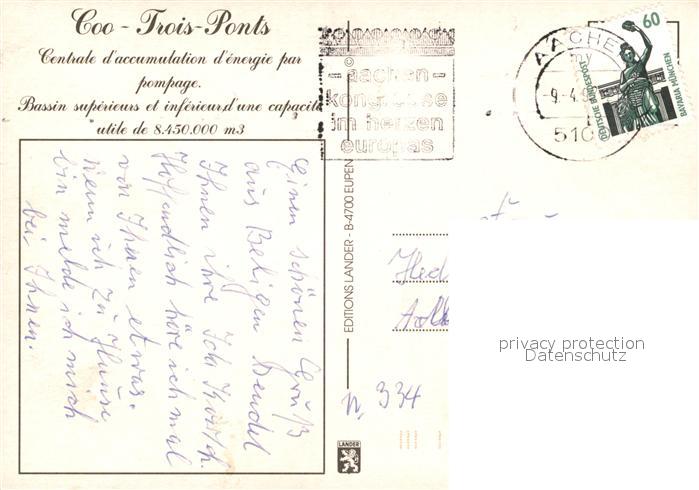 Coo - Trois-Ponts
Centrale d'accumulation d'énergie par
pompage.
Bassin supérieurs et inférieur d'une capacité
utile de 8.450.000 m3
Einen schönen Gruß
aus Belgien sendet
Ihnen ihre
Hoffendlich höre ich mal
von Ihnen etwas.
wenn ich zu Hause
bin melde ich mich
bei Ihnen.
EDITIONS LANDER - B-4700 EUPEN
LANDER
aachen -
kongresse
im herzen
europas
AACHEN
-9.-4.9
510
60
DEUTSCHE BUNDESPOST
BAVARIA MÜNCHEN
Hed
334
privacy protection
Datenschutz